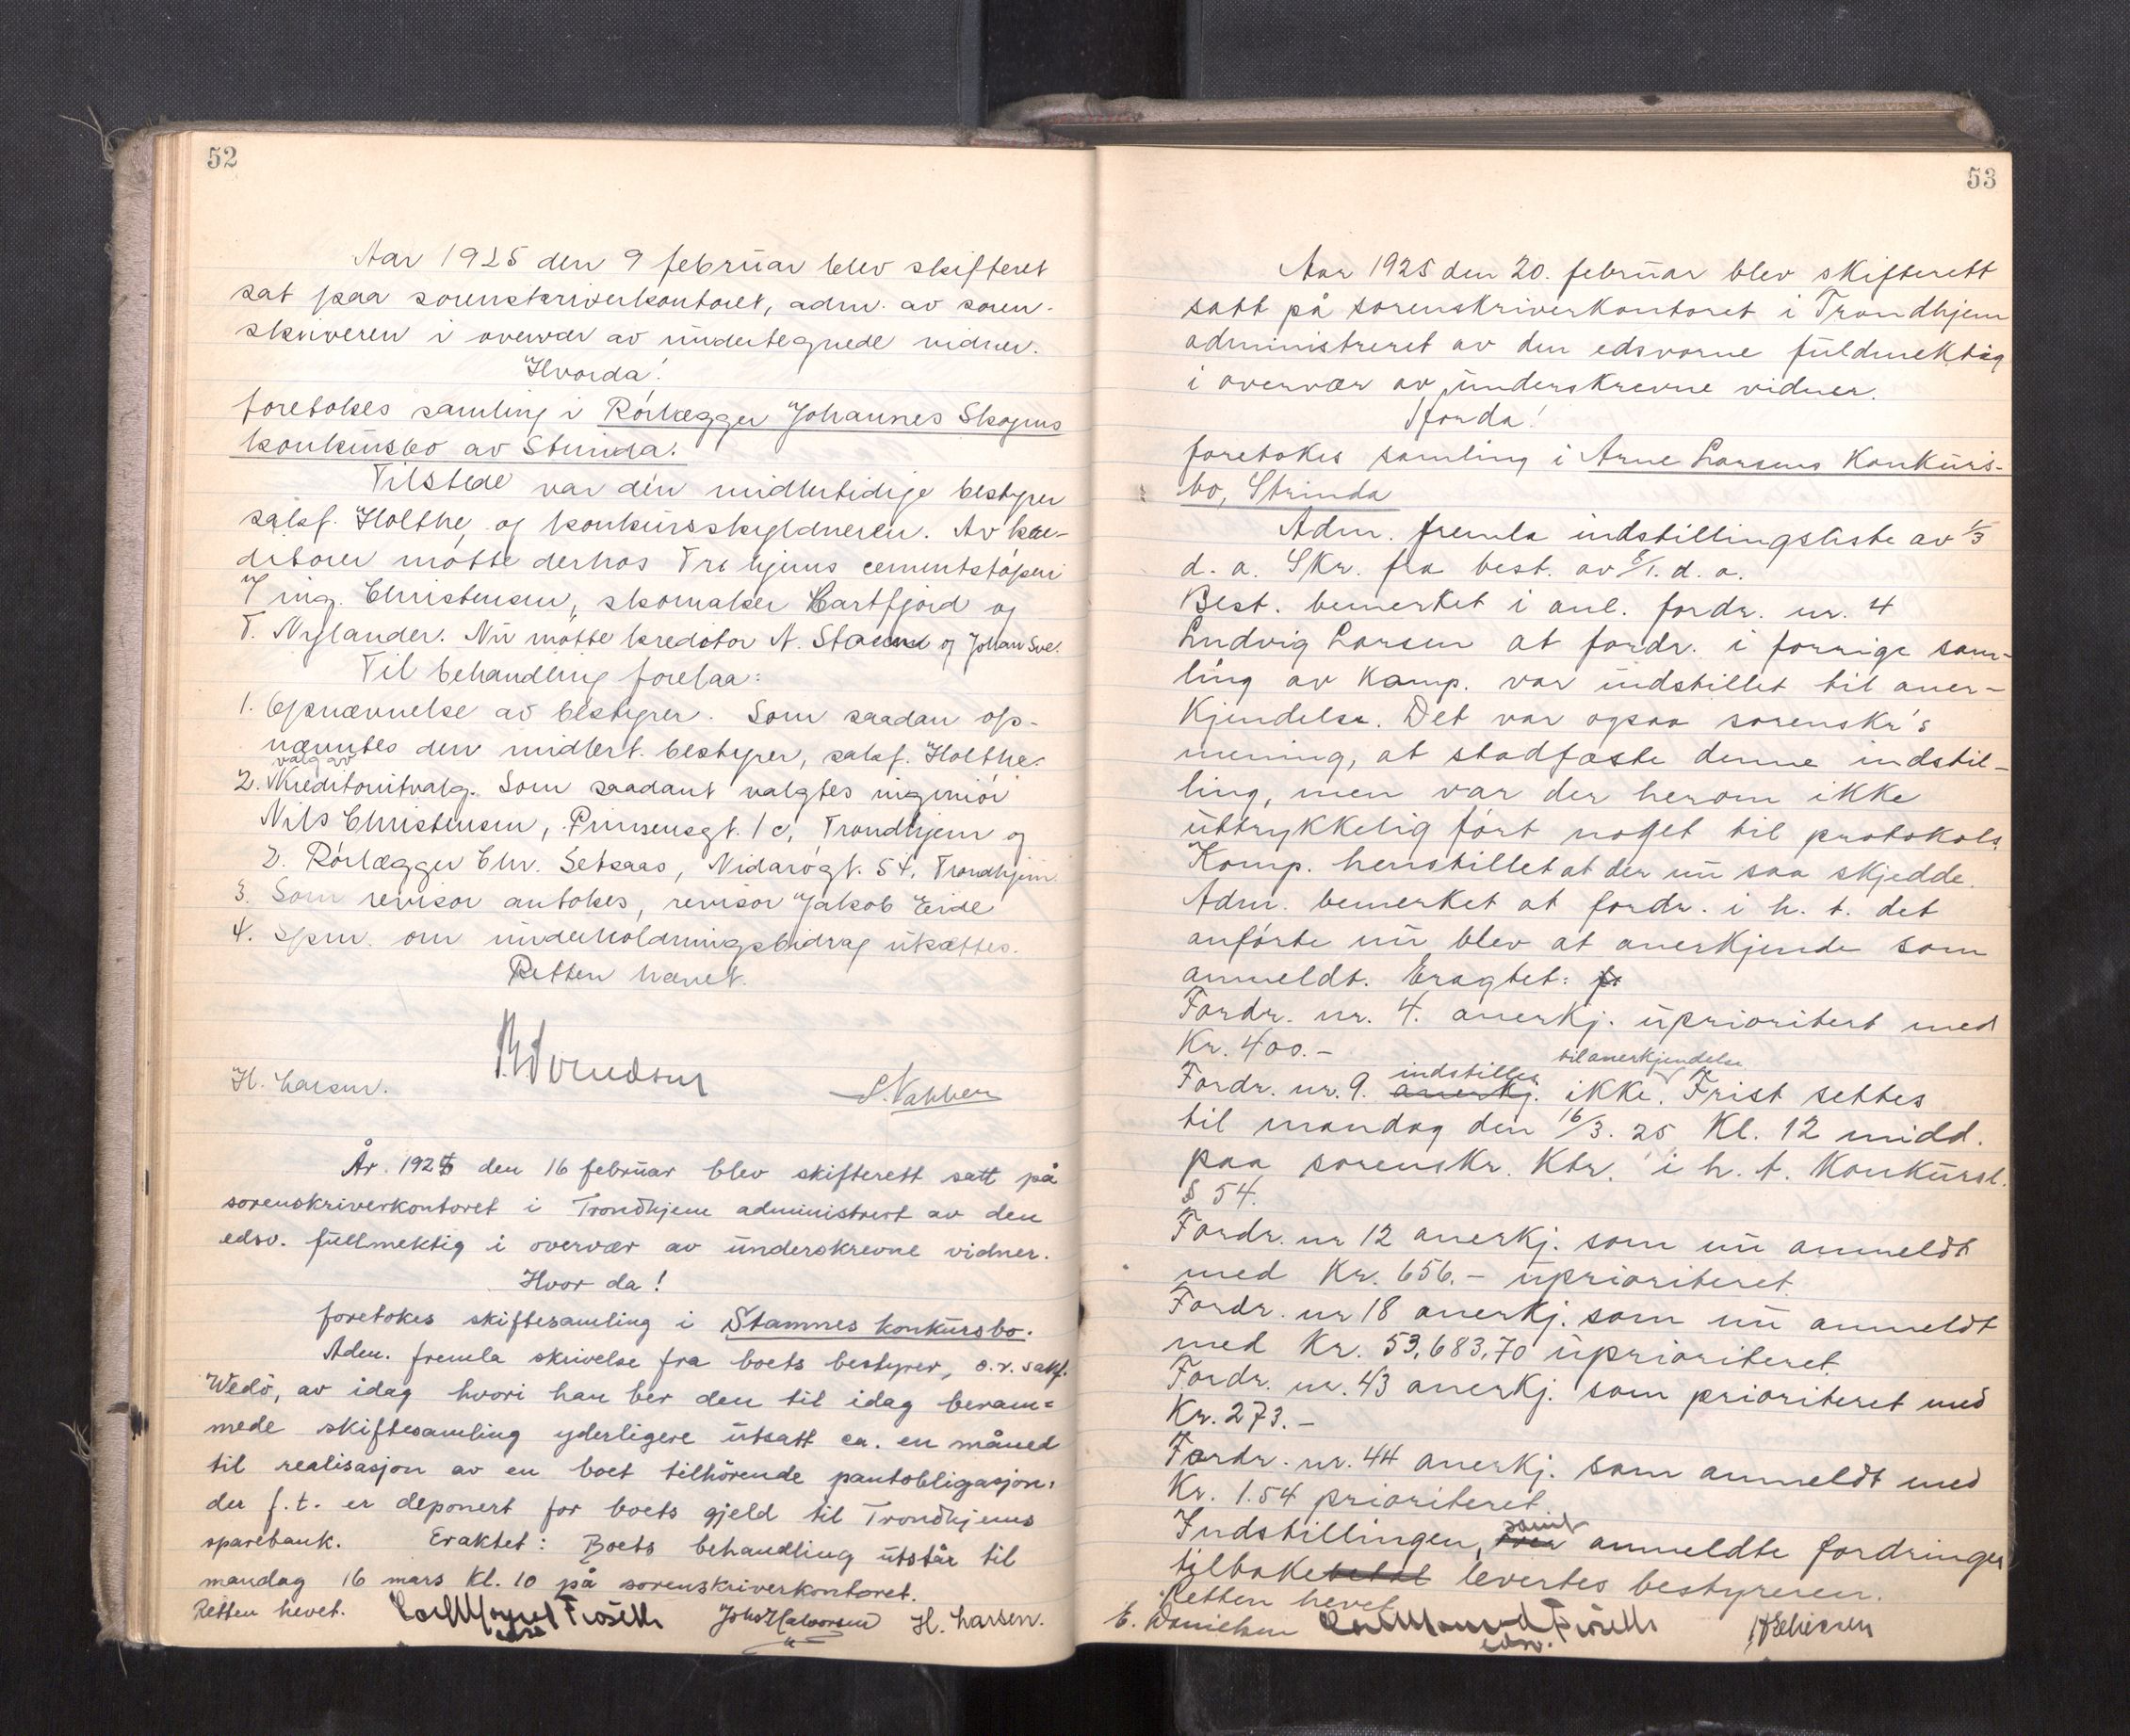 52
Aar 1925 den 9 februar blev skifteret
sat paa sorenskriverkontoret, adm. av soren-
skriveren i overvær av undertegnede vidner.
Hvorda!
foretokes samling i Rørlægger Johannes Skogmo
konkursbo av Strinda.
Tilstede var den midlertidige bestyrer
sakf. Holthe, og konkursskyldneren. Av kre-
ditorer møtte derhos Tr.hjems cementstøperi
v/ ing. Christensen, skomaker Hartfjord og
T. Nylander. Nu møtte kreditor A. og Johan Sve.
Til behandling forelaa:
1. Opnævnelse av bestyrer. Som saadan op-
nævntes den midlert. bestyrer, sakf. Holthe.
valg av
2. Kreditorutvalg. Som saadant valgtes ingeniør
Nils Christensen, Prinsensgt. 1c, Trondhjem og
2. Rørlægger Chr. Setsaas, Nidarøgt. 54, Trondhjem.
3. Som revisor antokes, revisor Jakob Eide
4. Spm. om underholdningsbidrag utsættes.
Retten hævet.
H. Larsen.
År. 1925 den 16 februar blev skifterett satt på
sorenskriverkontoret i Trondhjem administrert av den
edsv. fullmektig i overvær av underskrevne vidner.
Hvor da!
foretokes skiftesamling i Stamnes konkursbo.
Adm. fremla skrivelse fra boets bestyrer, o.r. sakf.
Wedö, av idag hvori han ber den til idag beram=
mede skiftesamling yderligere utsatt ca. en måned
til realisasjon av en boet tilhörende pantobligasjon,
der f.t. er deponert for boets gjeld til Trondhjems
sparebank. Eraktet: Boets behandling utstår til
mandag 16 mars kl. 10 på sorenskriverkontoret.
Retten hevet. Joh Halvorsen H. Larsen.
edsv
53
Aar 1925 den 20. februar blev skifterett
satt på sorenskriverkontoret i Trondhjem
administreret av den edsvorne fuldmektig
i overvær av underskrevne vidner.
Hvorda!
foretokes samling i Arne Larsens Konkurs-
bo, Strinda
Adm. fremla indstillingsliste av 1/3
d. a. Skr. fra best. av 8/1. d. a.
Best. bemerket i anl. fordr. nr. 4
Ludvig Larsen at fordr. i forrige sam-
ling av Komp. var indstillet til aner-
kjendelse. Det var ogsaa sorenskr's
mening, at stadfæste denne indstil-
ling, men var der herom ikke
uttrykkelig ført noget til protokols.
Komp. henstillet at der nu saa skjedde.
Adm. bemerket at fordr. i h. t. det
anførte nu blev at anerkjende som
anmeldt. Eragtet:
Fordr. nr. 4. anerkj. uprioritert med
Kr. 400.-
indstilles til anerkjendelse
Fordr. nr. 9. anerkj. ikke. Frist settes
til mandag den 16/3. 25 Kl. 12 midd.
paa sorenskr. Ktr. i h. t. Konkursl.
§ 54.
Fordr. nr 12 anerkj. som nu anmeldt
med Kr. 656.- uprioriteret.
Fordr. nr 18 anerkj. som nu anmeldt
med Kr. 53,683,70 uprioriteret.
Fordr. nr. 43 anerkj. som prioriteret med
Kr. 273.-
Fordr. nr. 44 anerkj. som anmeldt med
Kr. 1.54 prioriteret.
samt
Indstillingen, over anmeldte fordringer
tilbakebetal levertes bestyreren.
Retten hevet
E. Danielsen
edsv.